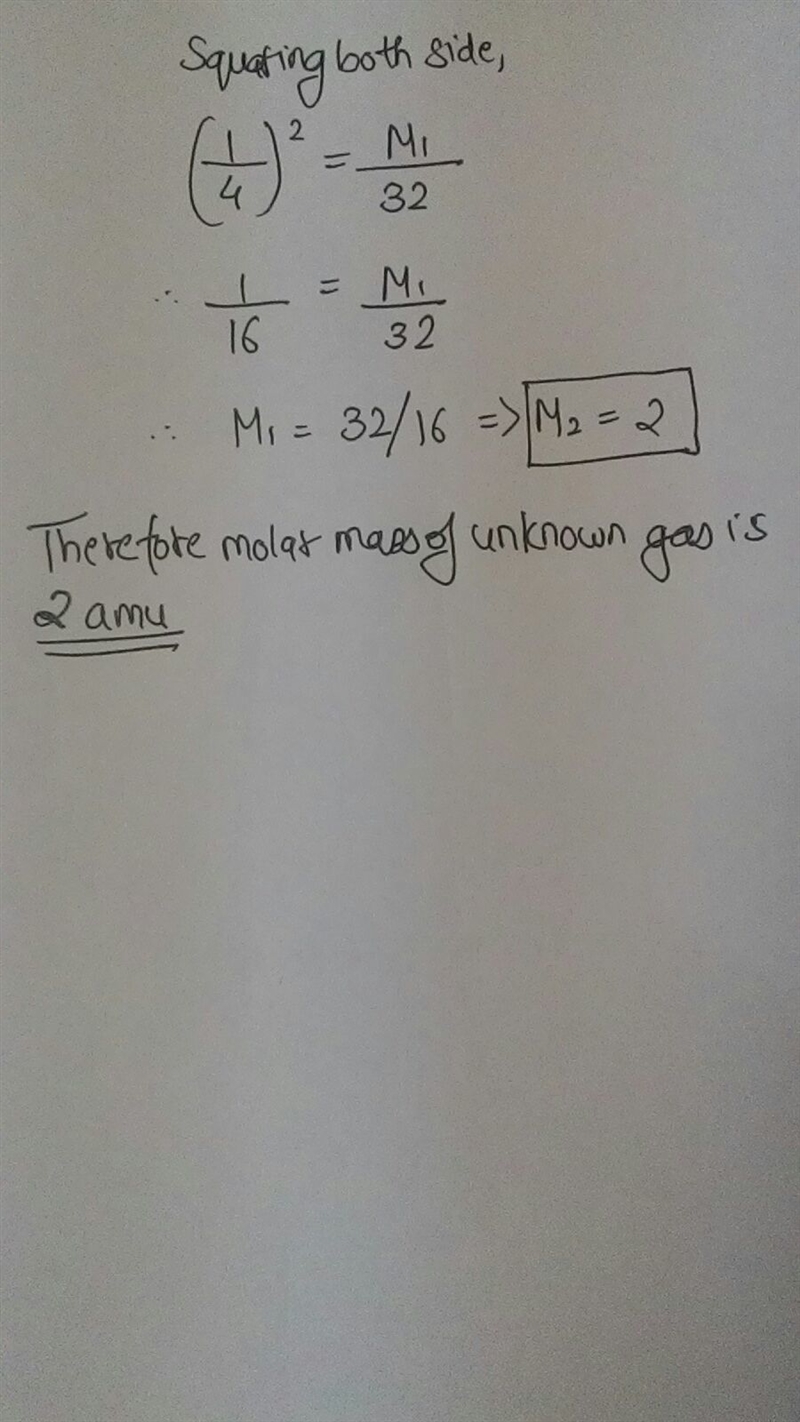 Squaring both side,
(1/4)² = M₁/32
∴ 1/16 = M₁/32
∴ M₁ = 32/16 => M₂ = 2
Therefore molar mass of unknown gas is
2 amu